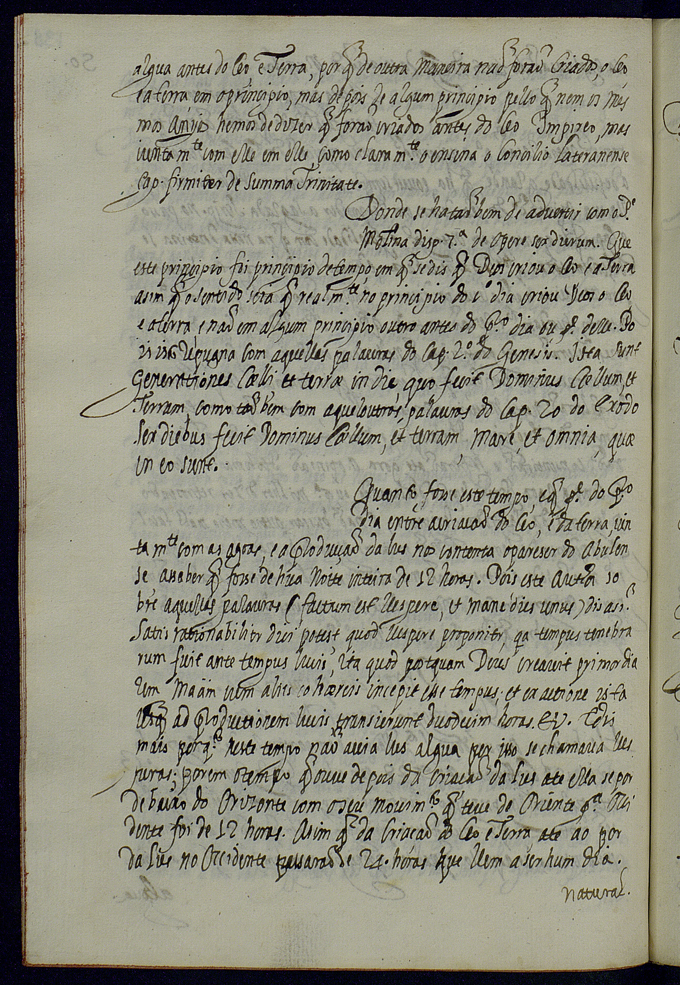 algua antes do Ceo, e Terra, por q̃ de outra maneira naõ foraõ Criados, o Ceo
e a terra em o principio, mas depois de algum principio pello q̃ nem os mes
mos Anjos hemos de dizer q̃ foraõ criados antes do Ceo Impireo, mas
iuntam.te com elle em elle, como claram.te o ensina o Concilio Lateranense
Cap. firmiter de Summa Trinitate.
Donde se ha taõbem de advertir com o P.e
Molina disp. 7.a de Opere sex dierum. Que
este principio foi principio de tempo, em q̃ se dis q̃ Deus criou o Ceo e a Terra
asim q̃ o sentido será q̃ realm.te no principio do 1.o dia criou Deos o Ceo
e a terra e naõ em algum principio outro antes do pr.o dia ou p.e delle. Po
is isso repugna com aquellas palauras do Cap. 2.o do Genesis. Ista sunt
Generationes Cœlli et terræ in die quo fecit Dominus Cœllum, et
Terram, como taõbem com aqueloutras palauras do Cap. 20 do Exodo
Sex diebus fecit Dominus Cœllum, et terram, mare, et omnia, quæ
in eo sunt.
Quanto fosse este tempo, e q̃ p.e do pr.o
dia entre a criacaõ do Ceo, e da terra, iun
tam.te com as agoas, e a produçaõ da lus nos contenta o pareser do Abulen
se a saber q̃ fosse de hũa Noite inteira de 12 horas. Pois este Author so
bre aquellas palauras (factum est Vespere, et mane dies unus) dis asi.
Satis rationabiliter dici potest quod Vespere proponitur, qa tempus tenebra
rum fuit ante tempus lucis, ita quod postquam Deus creavit primordia
lem Maãm cum aliis cohæreis incepit esse tempus; et ex actione ista
usq̃ ad productionem lucis transierunt duodecim horas. &c.
mais porq.e neste tempo naõ auia lus algua por isso se chamaua Ues
peras; porem o tempo q̃ ouue depois da Criacaõ da lus ate ella se por
debaixo do Orizonte com o seu mouim.to q̃ teue de Oriente p.a Oci
dente foi de 12 horas. Asim q̃ da Criacaõ do Ceo e Terra ate ao por
da lus no Occidente passaraõ de 24. horas que uem a ser hum dia.
natural.